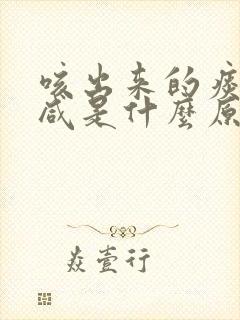 咳出来的痰
咸是什麼原
焱壹行